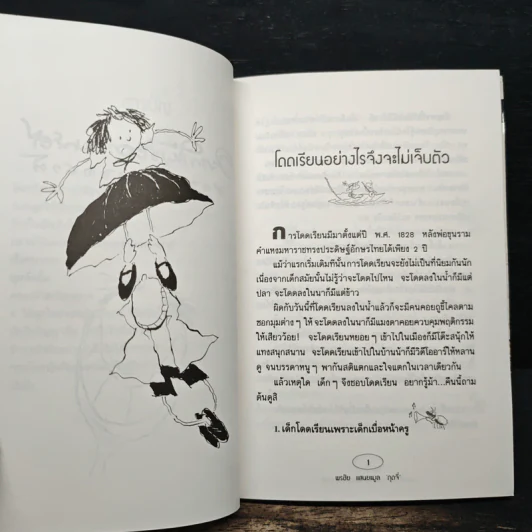 โดดเรียนอย่างไรจึงจะไม่เจ็บตัว
การโดดเรียนมีมาตั้งแต่ปี พ.ศ. 1828 หลังพ่อขุนราม
คำแหงมหาราชทรงประดิษฐ์อักษรไทยได้เพียง 2 ปี
แม้ว่าแรกเริ่มเดิมทีนั้นการโดดเรียนจะยังไม่เป็นที่นิยมกันนัก
เนื่องจากเด็กสมัยนั้นไม่รู้ว่าจะโดดไปไหน จะโดดลงในน้ำก็มีแต่
ปลา จะโดดลงในนาก็มีแต่ข้าว
ผิดกับวันนี้ที่โดดเรียนลงในน้ำแล้วก็จะมีคนคอยถูขี้ไคลตาม
ซอกมุมต่างๆ ให้ จะโดดลงในนาก็มีแมงดาคอยควบคุมพฤติกรรม
ให้เสียวว้อย! จะโดดเรียนหยอยๆ เข้าไปในเมืองก็มีโต๊ะสนุ้กให้
แทงสนุกสนาน จะโดดเรียนเข้าไปในบ้านน้าก็มีวิดีโออาร์ให้หลาน
ดู จนบรรดาหนูๆ พากันสติแตกและใจแตกในเวลาเดียวกัน
แล้วเหตุใด เด็กๆ จึงชอบโดดเรียน อยากรู้ม้า...คืนนี้ถาม
ต้นดูสิ
1. เด็กโดดเรียนเพราะเด็กเบื่อหน้าครู
1
พรชัย แสนยะมูล กุดจี่